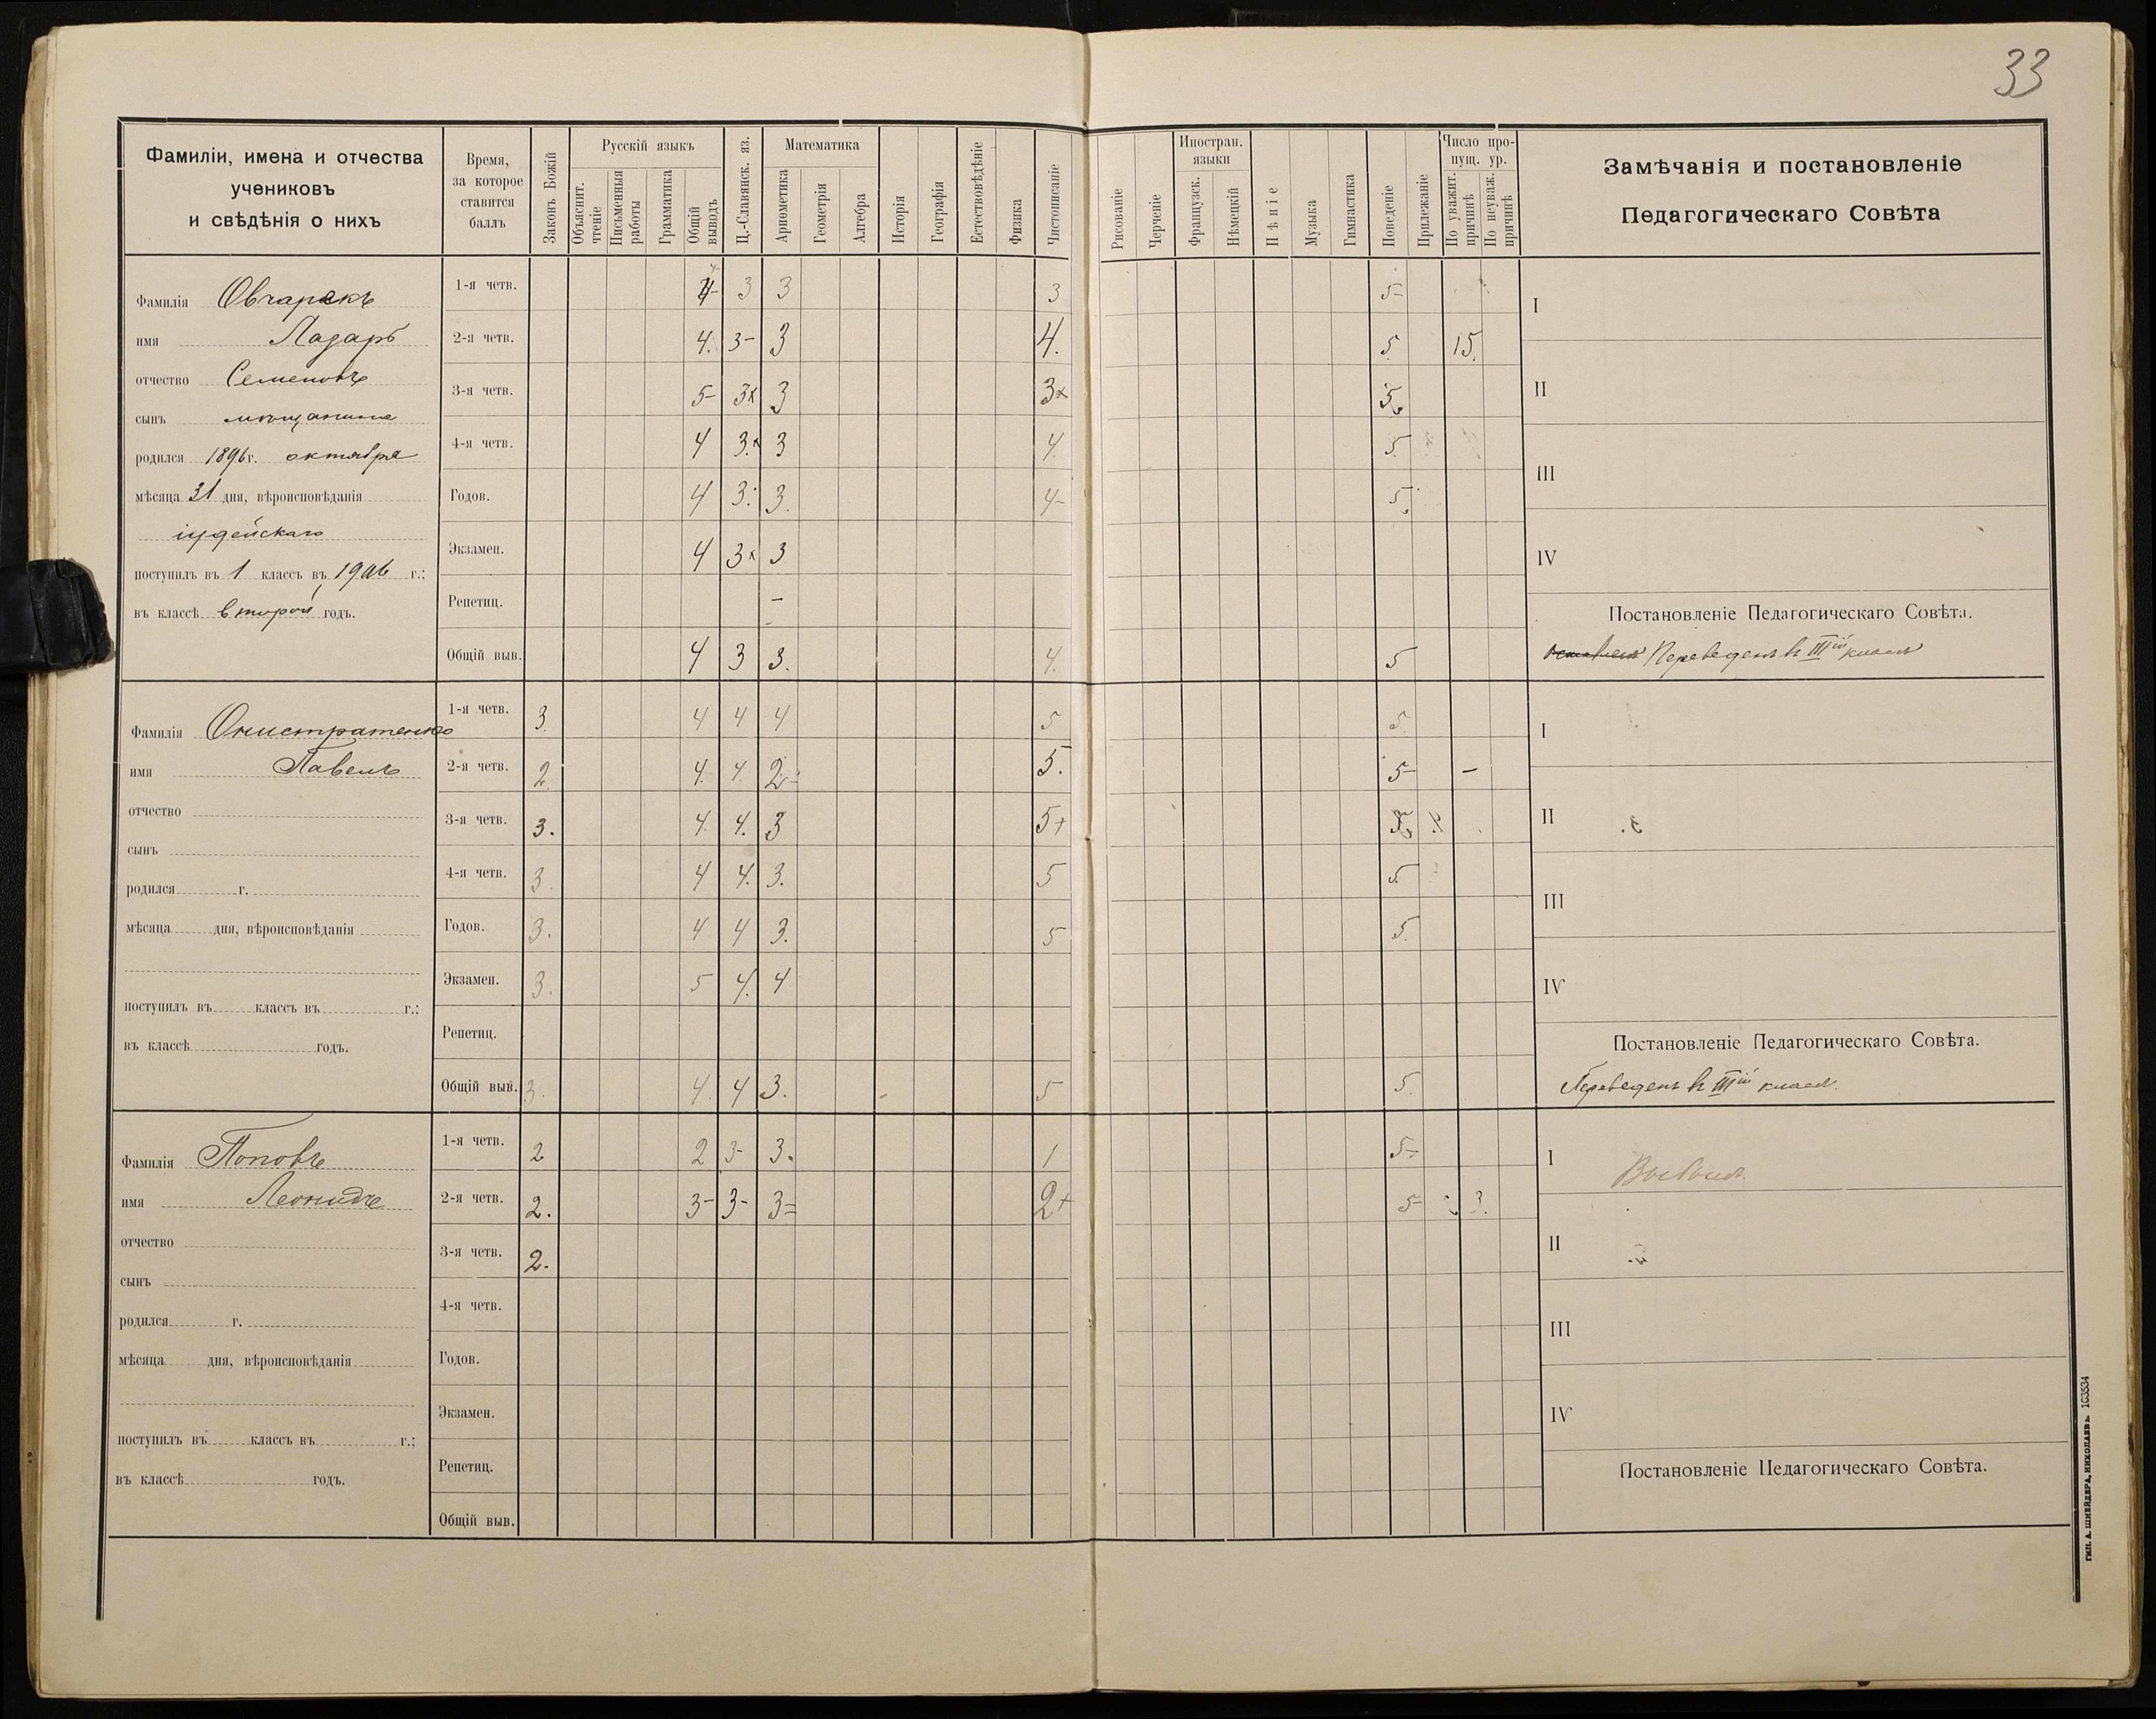 33
Фамиліи, имена и отчества
учениковъ
и свѣдѣнія о нихъ
Время,
за которое
ставится
баллъ
Законъ Божій
Русскій языкъ
Объяснит. чтеніе
Письменныя работы
Грамматика
Общій выводъ
Ц.-Славянск. яз.
Математика
Ариѳметика
Геометрія
Алгебра
Исторія
Географія
Естествовѣдѣніе
Физика
Чистописаніе
Рисованіе
Черченіе
Иностран. языки
Французск.
Нѣмецкій
Пѣніе
Музыка
Гимнастика
Поведеніе
Прилежаніе
Число пропущ. ур.
По уважит. причинѣ
По неуваж. причинѣ
Замѣчанія и постановленіе
Педагогическаго Совѣта
Фамилія
имя Лазарь
отчество Семеновъ
сынъ мѣщанина
родился 1896 г. октября
мѣсяца 31 дня, вѣроисповѣданія
іудейскаго
поступилъ въ 1 классъ въ 1906 г.;
въ классѣ второй годъ.
1-я четв. 4- 3 3 3 5-
2-я четв. 4. 3- 3 4. 5. 15.
3-я четв. 5- 3х 3 3х 5
4-я четв. 4 3.х 3 4. 5.
Годов. 4 3. 3. 4- 5
Экзамен. 4 3х 3
Репетиц. –
Общій выв. 4 3 3. 4. 5
I
II
III
IV
Постановленіе Педагогическаго Совѣта.
Переведенъ въ IIIій классъ
Фамилія Онистратенко
имя Павелъ
отчество
сынъ
родился г.
мѣсяца дня, вѣроисповѣданія
поступилъ въ классъ въ г.;
въ классѣ годъ.
1-я четв. 3. 4 4 4 5 5.
2-я четв. 2. 4. 4. 2- 5. 5- –
3-я четв. 3. 4. 4. 3 5+ 5
4-я четв. 3. 4 4. 3. 5 5
Годов. 3. 4 4 3. 5 5.
Экзамен. 3. 5 4. 4
Репетиц.
Общій выв. 3. 4. 4 3. 5 5.
I
II
III
IV
Постановленіе Педагогическаго Совѣта.
Переведенъ въ IIIій классъ.
Фамилія Поповъ
имя Леонидъ
отчество
сынъ
родился г.
мѣсяца дня, вѣроисповѣданія
поступилъ въ классъ въ г.;
въ классѣ годъ.
1-я четв. 2 2 3- 3. 1 5-
2-я четв. 2. 3- 3- 3= 2+ 5- 3.
3-я четв. 2.
4-я четв.
Годов.
Экзамен.
Репетиц.
Общій выв.
I Выбылъ.
II
III
IV
Постановленіе Педагогическаго Совѣта.
ТИП. А. ШНЕЙДЕРА, НИКОЛАЕВЪ. 103534